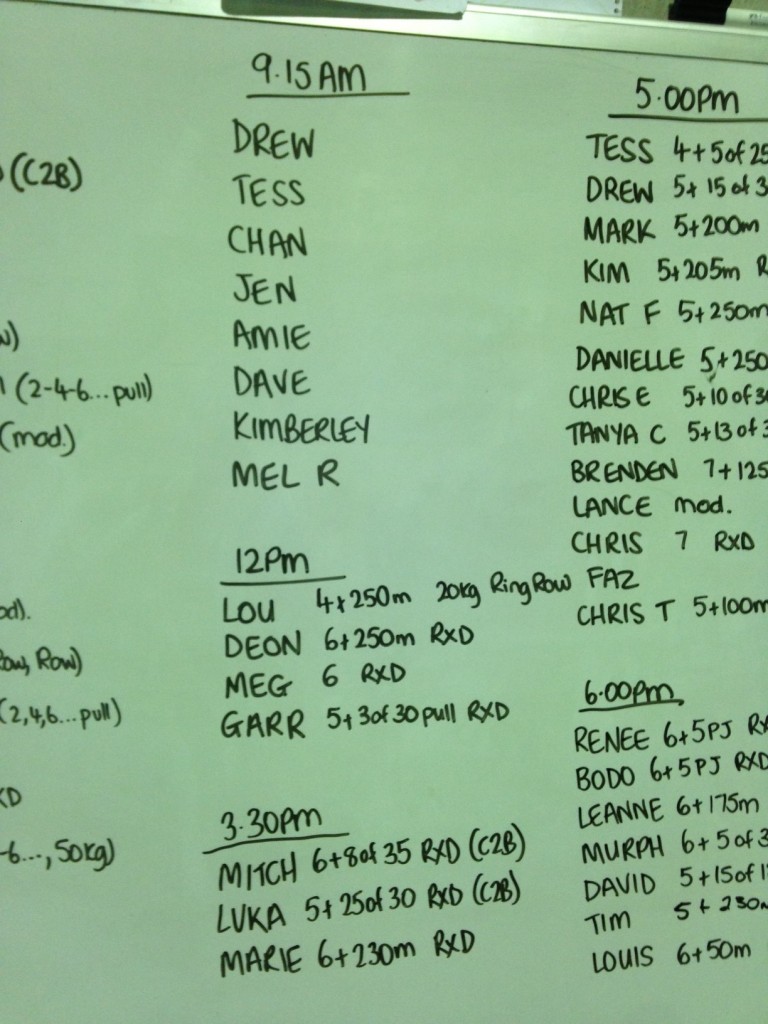 (C2B)
(2-4-6...pull)
(mod.)
Row)
(2,4,6...pull)
-6..., 50kg)
9.15AM
DREW
TESS
CHAN
JEN
AMIE
DAVE
KIMBERLEY
MEL R
12Pm
LOU 4+250m 20kg Ring Row
DEON 6+250m RXD
MEG 6 RXD
GARR 5+3of 30 pull RXD
3.30pm
MITCH 6+8of 35 RXD (C2B)
LUKA 5+25of 30 RXD (C2B)
MARIE 6+230m RXD
5.00pm
TESS 4+5of 25
DREW 5+15 of 3
MARK 5+200m
KIM 5+205m R
NAT F 5+250m
DANIELLE 5+250
CHRIS E 5+10 of 30
TANYA C 5+13 of 3
BRENDEN 7+125
LANCE mod.
CHRIS 7 RXD
FAZ
CHRIS T 5+100m
6.00pm
RENEE 6+5PJ RX
BODO 6+5PJ RXD
LEANNE 6+175m
MURPH 6+5 of 3
DAVID 5+15of 1
TIM 5+230m
LOUIS 6+50m